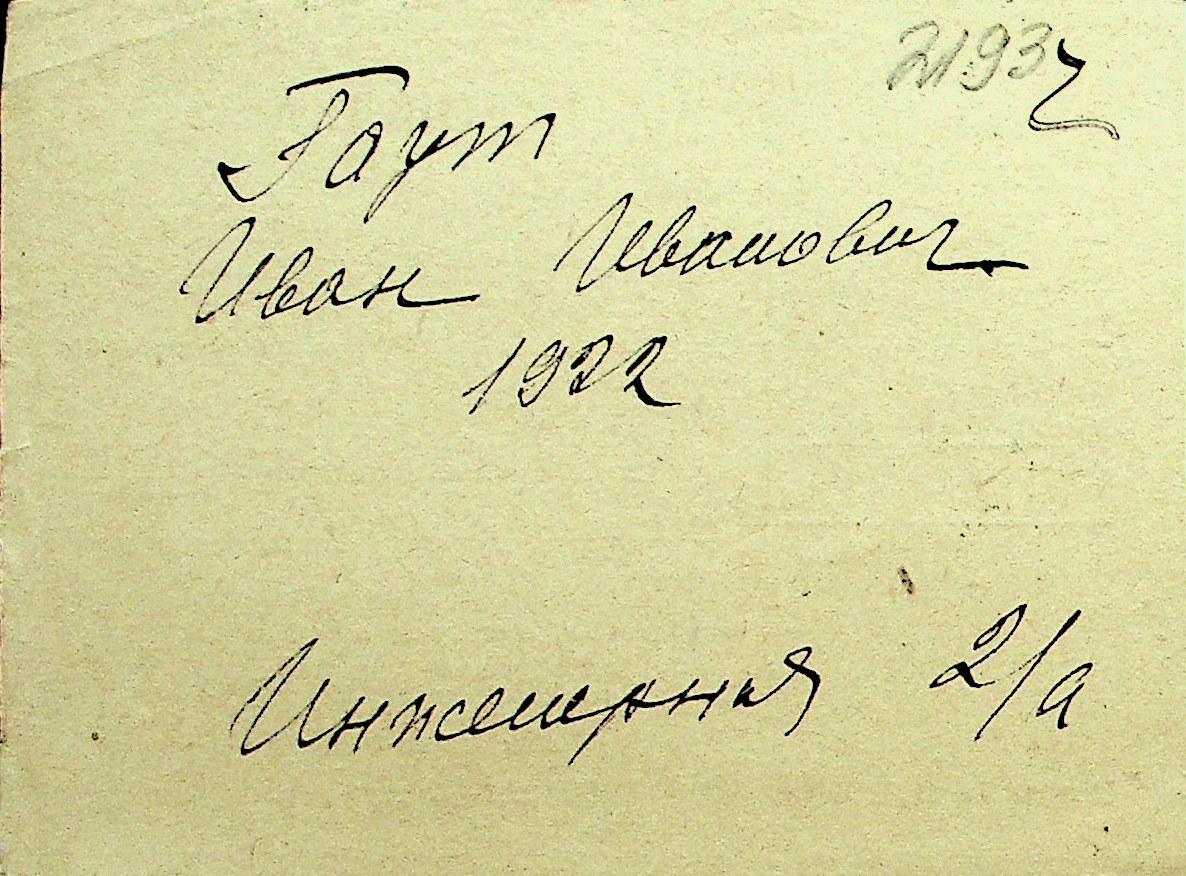 21932
Гаут
Иван Иванович
1922
Инженерная 2/а